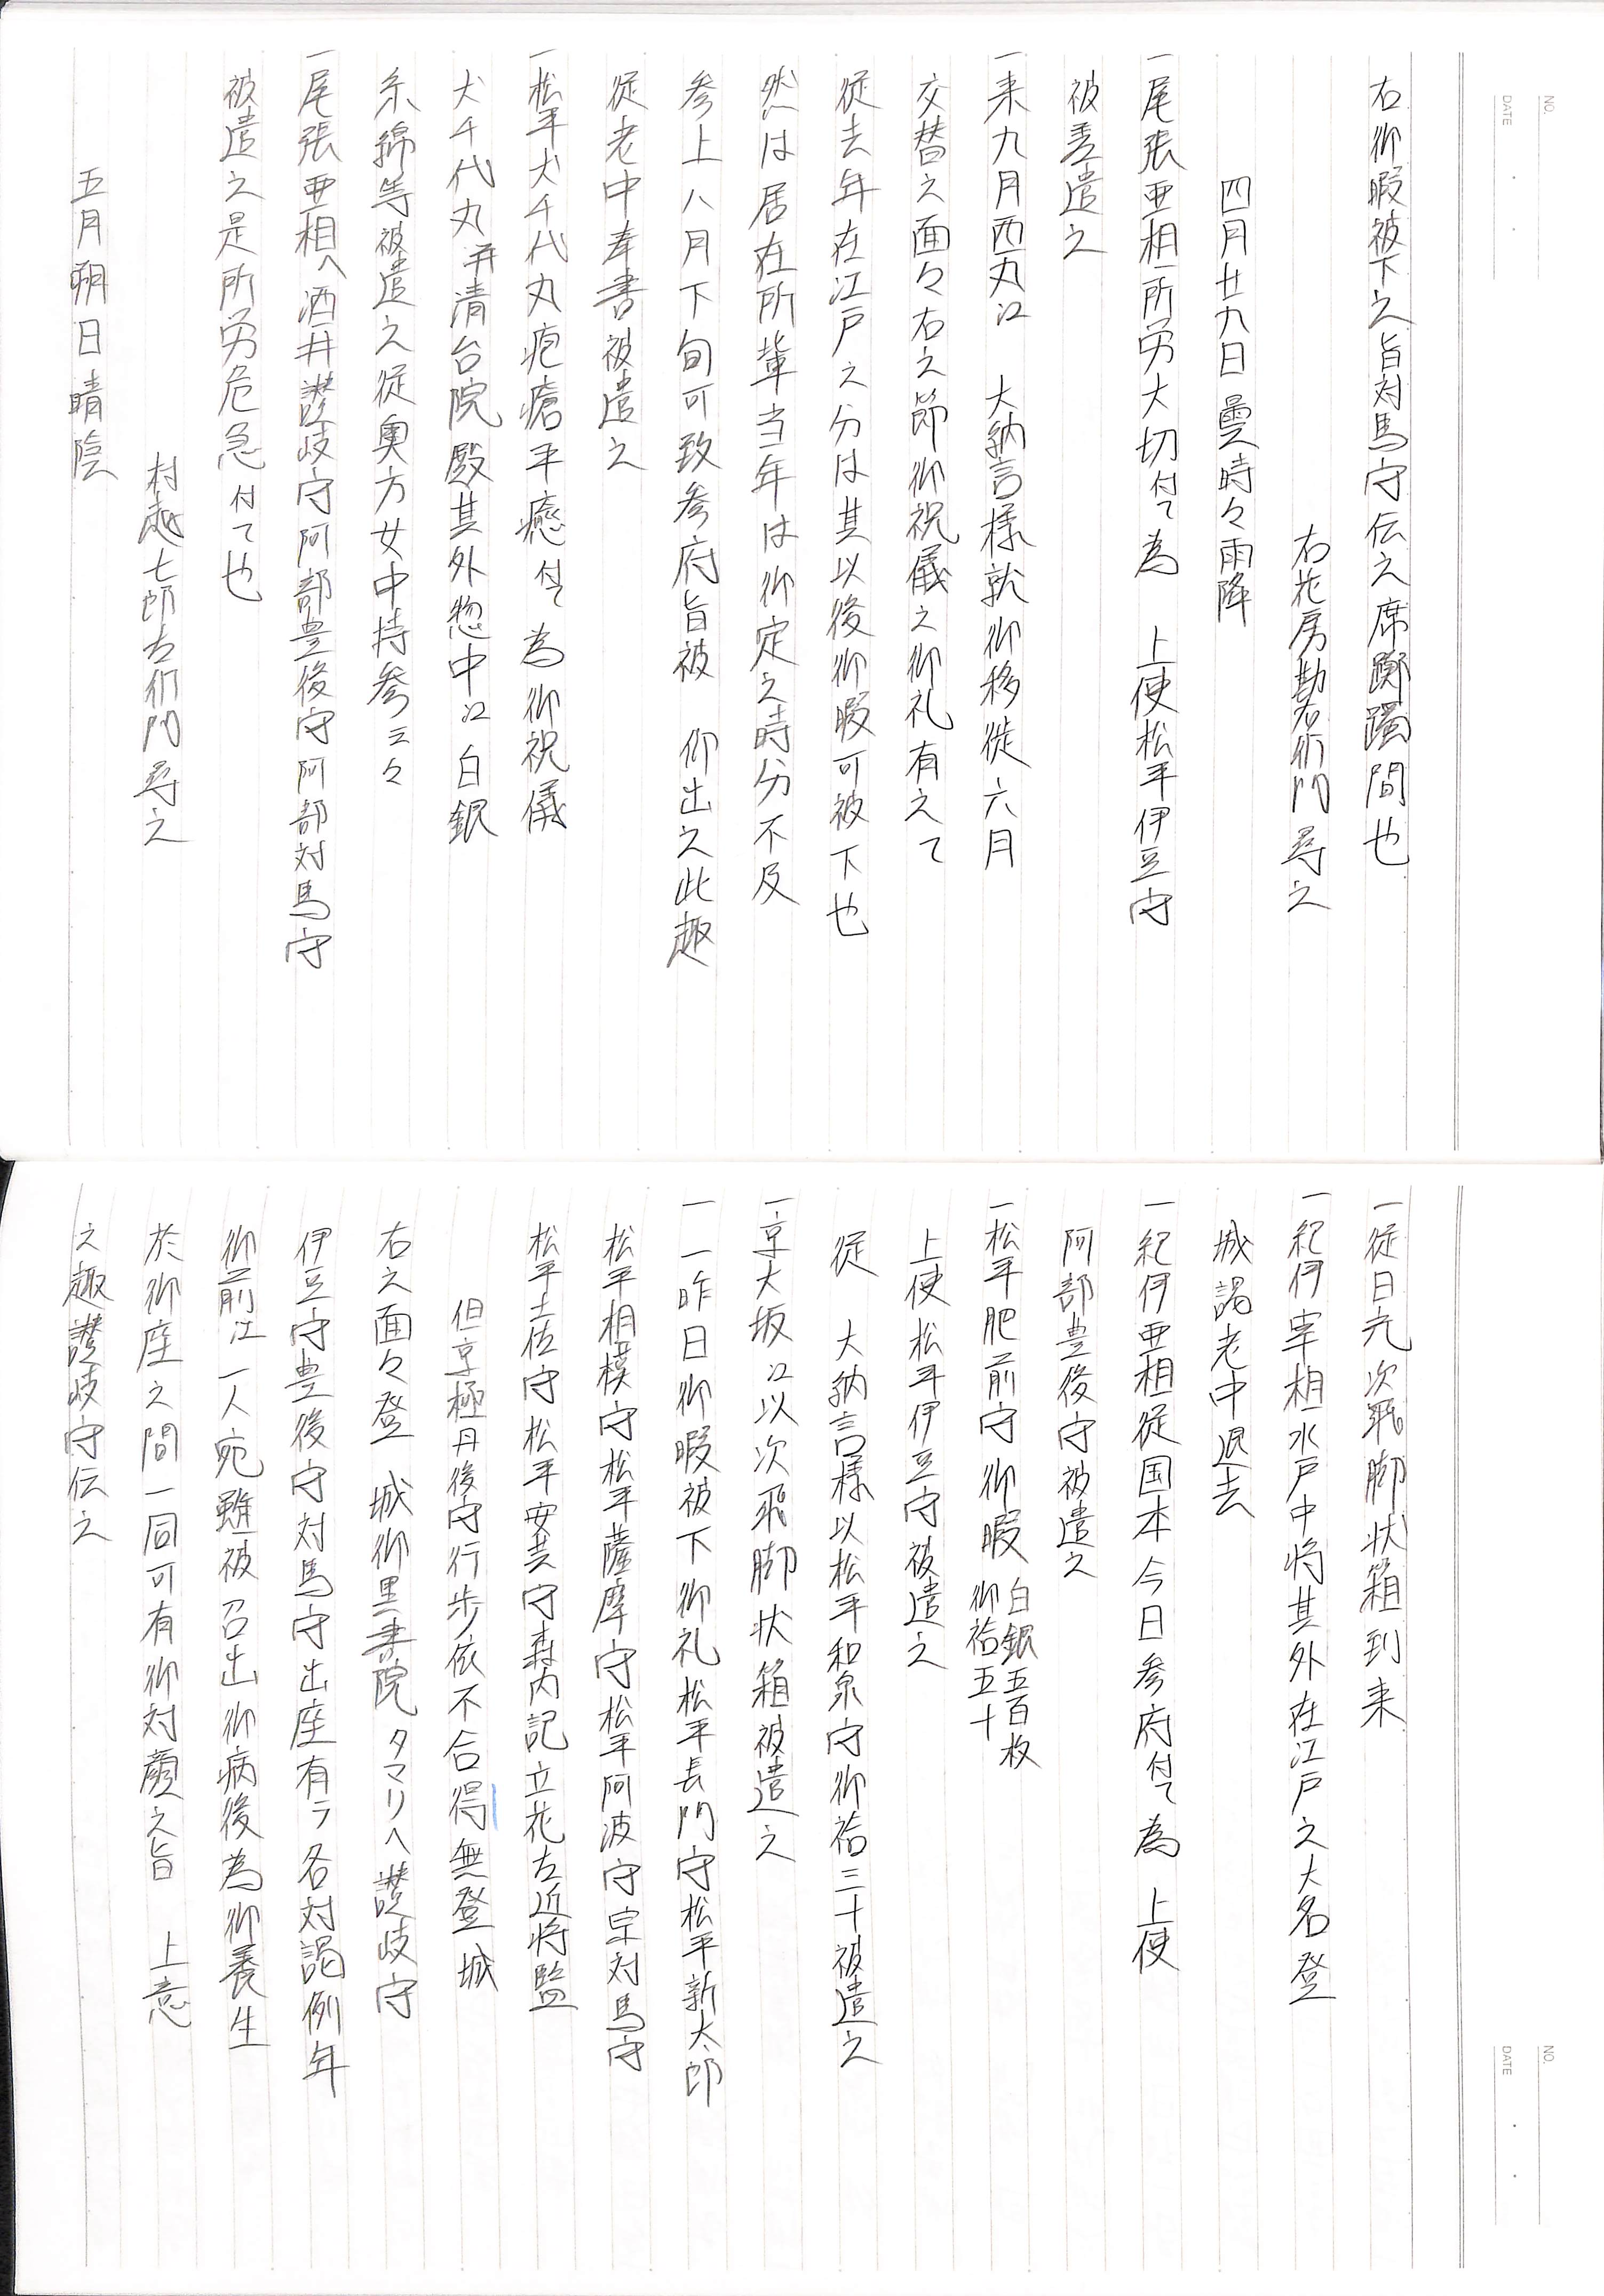 右御暇被下之旨対馬守伝之席躑躅間也
右花房勘右衛門尋之
四月廿九日曇時々雨降
一尾張亜相所労大切付て為　上使松平伊豆守
被差遣之
一来九月西丸江　大納言様就御移徙六月
交替之面々右之節御祝儀之御礼有之て
従去年在江戸之分は其以後御暇可被下也
然は居在所輩当年は御定之時分不及
参上八月下旬可致参府旨被　仰出之此趣
従老中奉書被遣之
一松平犬千代丸疱瘡平癒付て為御祝儀
犬千代丸并清台院殿其外惣中江白銀
糸綿等被遣之従奥方女中持参云々
一尾張亜相へ酒井讃岐守阿部豊後守阿部対馬守
被遣之是所労危急付て也
村越七郎左衛門尋之
五月朔日晴陰
NO.
DATE
一従日光次飛脚状箱到来
一紀伊宰相水戸中将其外在江戸之大名登
城謁老中退去
一紀伊亜相従国本今日参府付て為　上使
阿部豊後守被遣之
一松平肥前守御暇　白銀五百枚　御袷五十
上使松平伊豆守被遣之
従　大納言様以松平和泉守御袷三十被遣之
一京大坂江以次飛脚状箱被遣之
一一昨日御暇被下御礼松平長門守松平新太郎
松平相模守松平薩摩守松平阿波守宗対馬守
松平土佐守松平安芸守森内記立花左近将監
但京極丹後守行歩依不合得無登城
右之面々登　城御黒書院タマリへ讃岐守
伊豆守豊後守対馬守出座有テ各対謁例年
御前江一人宛雖被召出御病後為御養生
於御座之間一同可有御対顔之旨　上意
之趣讃岐守伝之
NO.
DATE